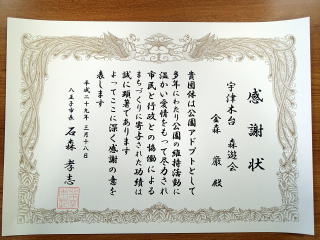 感謝状
宇津木台 森遊会
金森 巌 殿
貴団体は公園アドプトとして
多年にわたり公園の維持活動に
温かい愛情をもって尽力され
市民と行政との協働による
まちづくりに寄与された功績は
誠に顕著であります
よってここに深く感謝の意を
表します
平成二十九年 三月十八日
八王子市長 石森 孝志